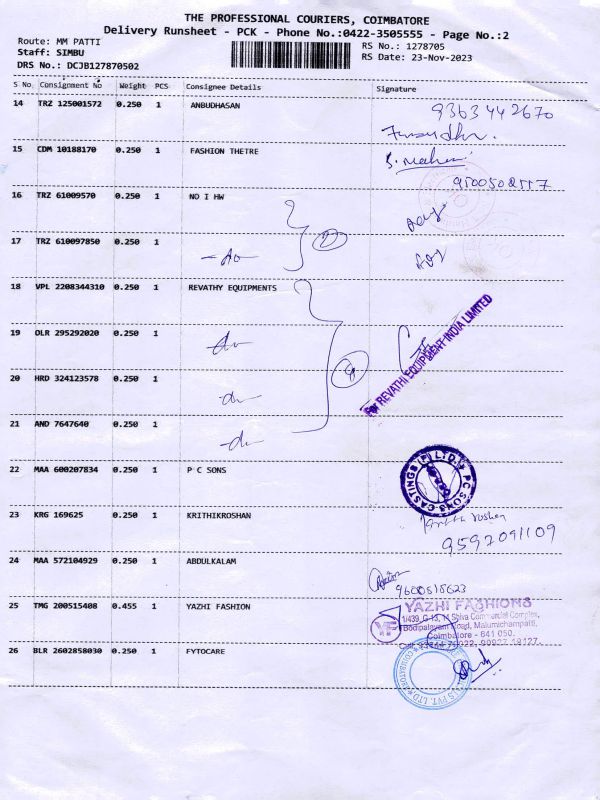 THE PROFESSIONAL COURIERS, COIMBATORE
Delivery Runsheet - PCK - Phone No.:0422-3505555 - Page No.:2
Route: MM PATTI
Staff: SIMBU
DRS No.: DCJB127870502
RS No.: 1278705
RS Date: 23-Nov-2023
S No Consignment No Weight PCS Consignee Details Signature
14 TRZ 125001572 0.250 1 ANBUDHASAN 9363442670
15 CDM 10188170 0.250 1 FASHION THETRE
16 TRZ 61009570 0.250 1 NO I HW
17 TRZ 610097850 0.250 1
18 VPL 2208344310 0.250 1 REVATHY EQUIPMENTS
For REVATHI EQUIPMENT INDIA LIMITED
19 OLR 295292020 0.250 1
20 HRD 324123578 0.250 1
21 AND 7647640 0.250 1
22 MAA 600207834 0.250 1 P C SONS
PC SONS CASTINGS (P) LTD.
23 KRG 169625 0.250 1 KRITHIKROSHAN
9597091109
24 MAA 572104929 0.250 1 ABDULKALAM
9600515623
25 TMG 200515408 0.455 1 YAZHI FASHION
YAZHI FASHIONS
Bodipalayam Road, Malumichampatti,
Coimbatore - 641 050.
26 BLR 2602858030 0.250 1 FYTOCARE